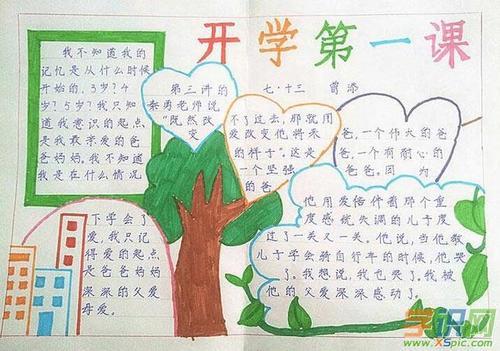 开学第一课
七·十三 曾添
我不知道我的
记忆是从什么时候
开始的，3岁？4
岁？5岁？我只知
道我意识的起点
是我最亲爱的爸
爸妈妈，我不知道
我是在什么情况
下学会了
爱，我只记
得爱的起点
是爸爸妈妈
深深的父爱
母爱。
第三讲的
秦勇老师说
“既然改
变
不了过去，那就用
爱改变他将来
的样子”。这是
一个坚强
的爸
爸，一个伟大的爸
爸，一个有耐心的
爸爸。因为
他用爱陪伴着那个重
度感统失调的儿子度
过了一关又一关。他说，当他教
儿子学会骑自行车的时候，他哭
了。我想说，我也哭了。我被
他的父爱深深感动了。
学识网
www.XSpic.com